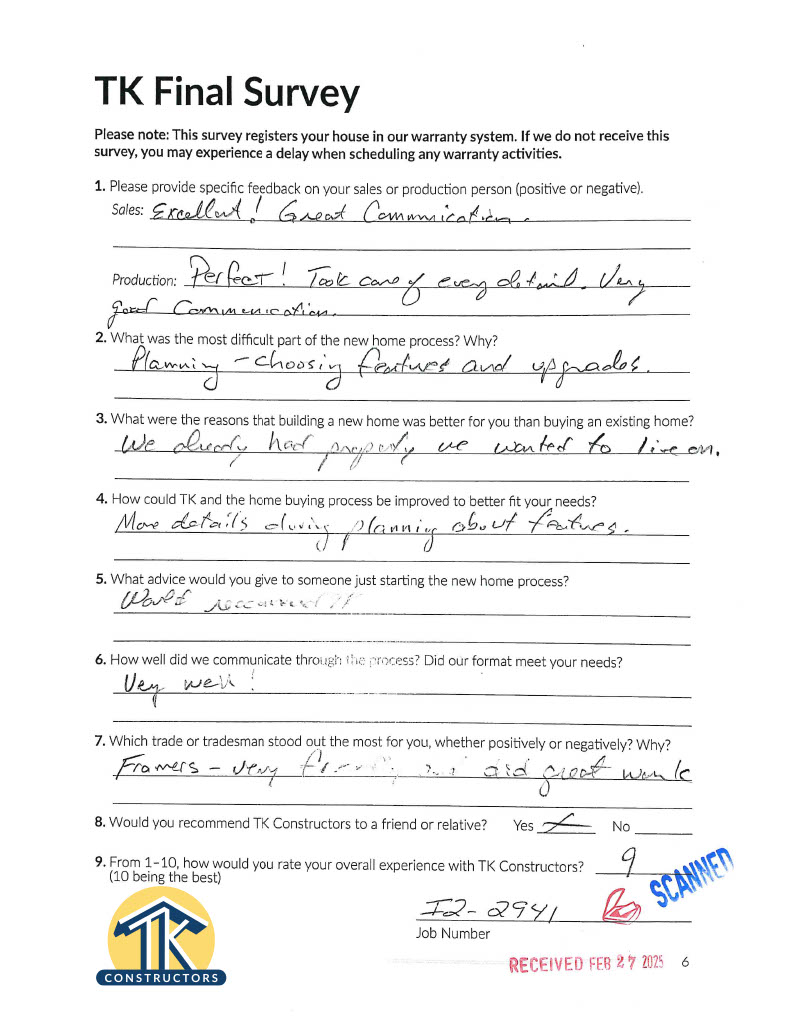 TK Final Survey
Please note: This survey registers your house in our warranty system. If we do not receive this
survey, you may experience a delay when scheduling any warranty activities.
1. Please provide specific feedback on your sales or production person (positive or negative).
Sales: Excellent! Great Communication.
Production: Perfect! Took care of every detail. Very
good Communication.
2. What was the most difficult part of the new home process? Why?
Planning - choosing features and upgrades.
3. What were the reasons that building a new home was better for you than buying an existing home?
We already had property we wanted to live on.
4. How could TK and the home buying process be improved to better fit your needs?
More details during planning about features.
5. What advice would you give to someone just starting the new home process?
Would recommend
6. How well did we communicate through the process? Did our format meet your needs?
Very well!
7. Which trade or tradesman stood out the most for you, whether positively or negatively? Why?
Framers - very friendly and did great work
8. Would you recommend TK Constructors to a friend or relative? Yes No
9. From 1-10, how would you rate your overall experience with TK Constructors? 9
(10 being the best)
SCANNED
I2-2941
Job Number
TK
CONSTRUCTORS
RECEIVED FEB 27 2025 6